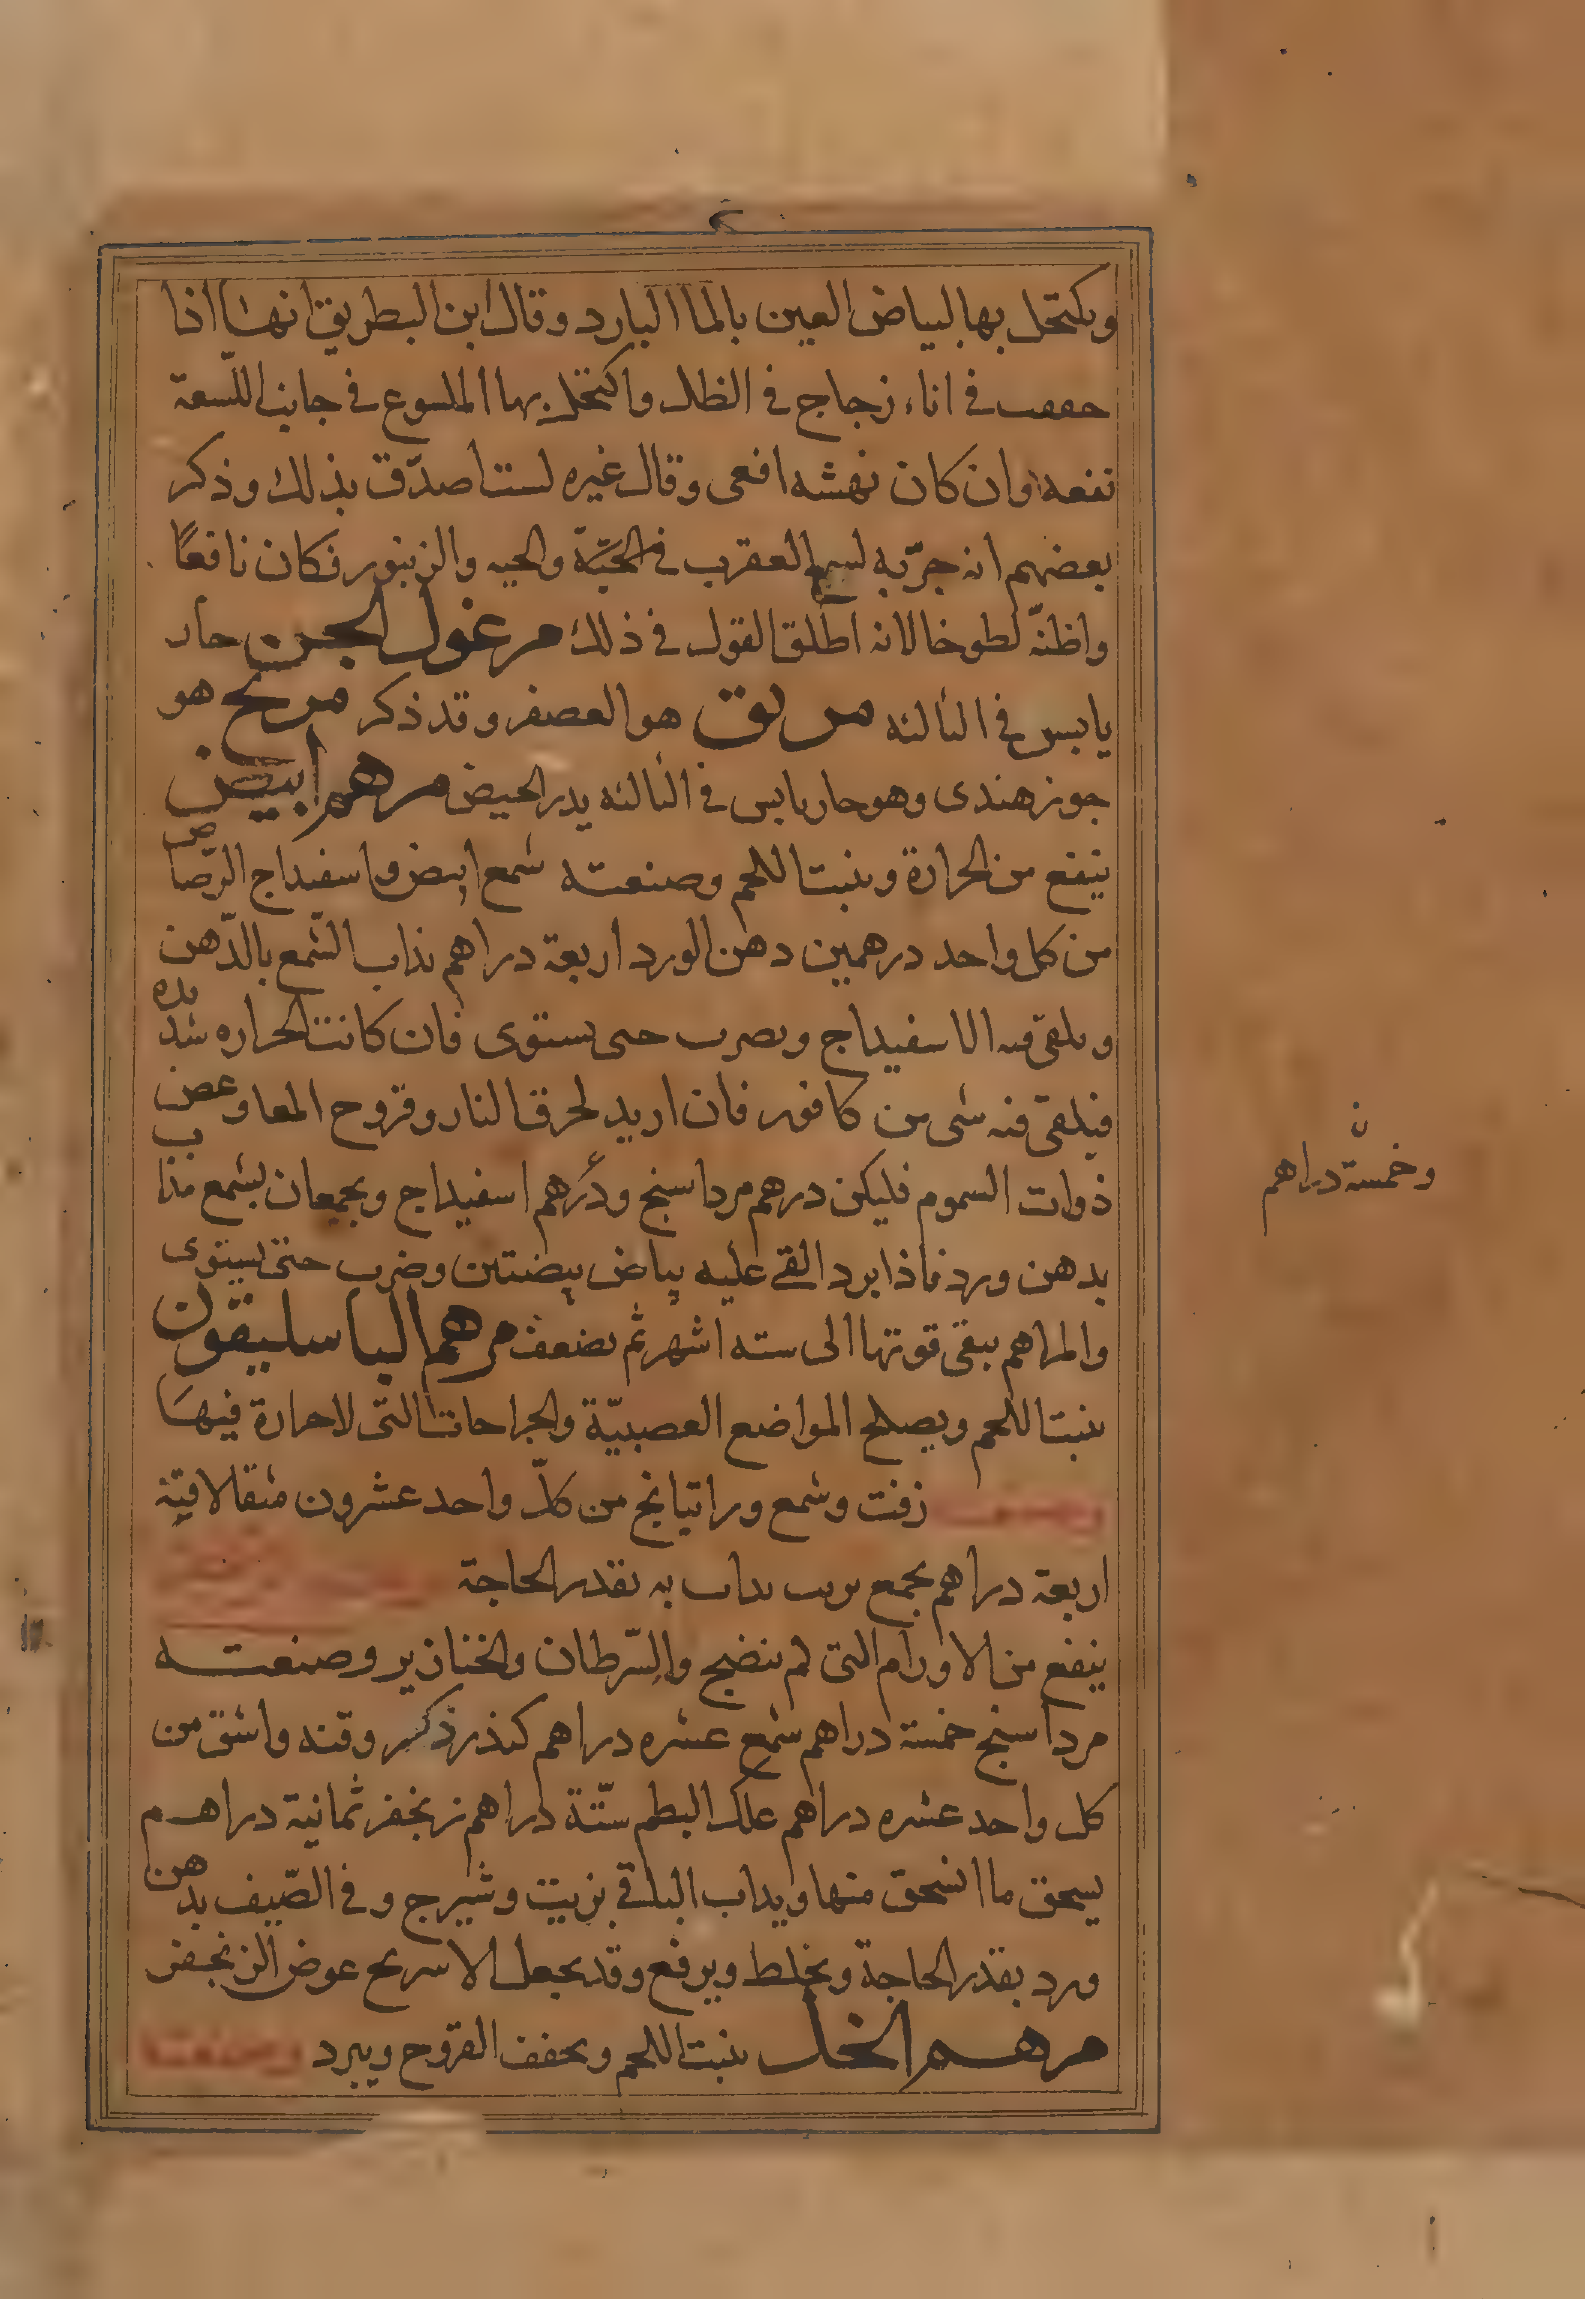 ويكتحل بها لبياض العين بالماا البارد وقال ابن البطريق انها اذا
جففت في اناء زجاج في الظل واكتحل بها الملسوع في جانب اللسعة
نفعه وان كان نهشه افعى وقال غيره لست اصدّق بذلك وذكر
بعضهم انه جرّبه لسم العقرب في الحيّة والحيه والزنبور فكان نافعًا
واظنّه لطوخا لانه اطلق القول في ذلك مرغول الجن حار
يابس في الثالثه مريق هو العصفر وقد ذكر مريح هو
جوز هندى وهو حار يابس في الثالثه يدر الحيض مرهم ابيض
ينفع من الحرارة وينبت اللحم وصنعته شمع ابيض واسفيداج الرّصاص
من كل واحد درهمين دهن الورد اربعة دراهم يذاب الشمع بالدّهن
ويلقى فيه الاسفيداج ويضرب حتى يستوى فان كانت الحراره شديده
فيلقى فيه شى من كافور فان اريد لحرق النار وقروح المعا وعض
ذوات السموم فليكن درهم مرداسنج ودرهم اسفيداج ويجمعان بشمع مذاب
بدهن ورد فاذا برد القى عليه بياض بيضتين وضرب حتى يستوى
والمراهم يبقى قوتها الى سته اشهر ثم يضعف مرهم الباسليقون
ينبت اللحم ويصلح المواضع العصبيّة والجراحات التى لا حرارة فيها
وصنعته زفت وشمع وراتيانج من كلّ واحد عشرون مثقالا قنة
اربعة دراهم يجمع بزيت يذاب به بقدر الحاجة
ينفع من الاورام التى لم ينضج والسّرطان والخنازير وصنعته
مرداسنج خمسة دراهم شمع عشره دراهم كندر ذكر وقنه واشق من
كل واحد عشره دراهم علك البطم ستّة دراهم زنجفر ثمانية دراهم
يسحق ما انسحق منها ويذاب الباقى بزيت وشيرج وفي الصّيف بدهن
ورد بقدر الحاجة ويخلط ويرفع وقد يجعل الاسرنج عوض الزنجفر
مرهم الخل ينبت اللحم ويجفف القروح ويبرد وصنعته
وخمسة دراهم